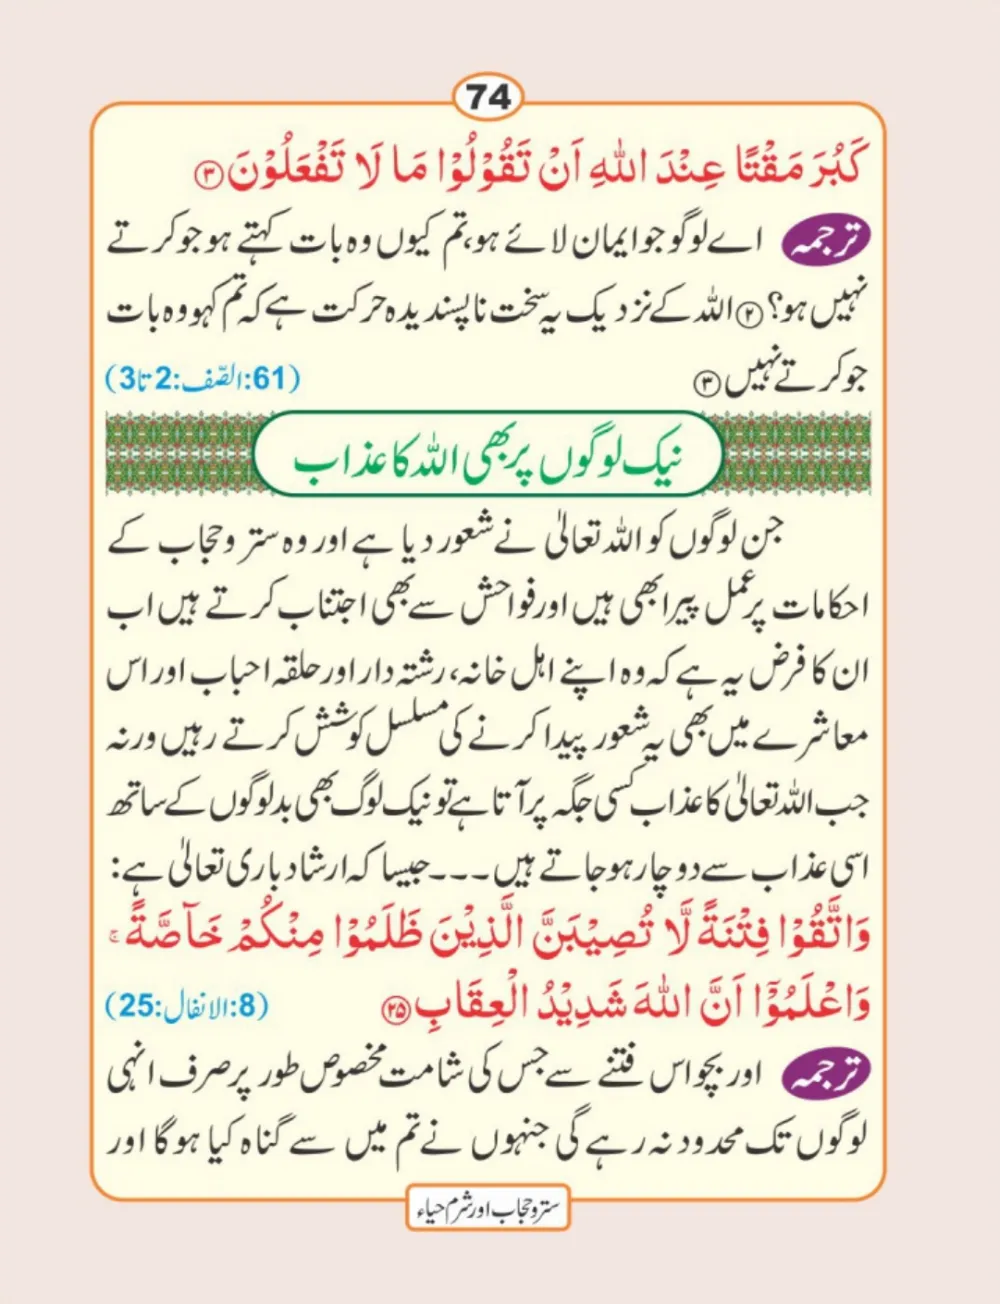 74
كَبُرَ مَقْتًا عِنْدَ اللّٰهِ اَنْ تَقُوْلُوْا مَا لَا تَفْعَلُوْنَ ۝۳
ترجمہ اے لوگو جو ایمان لائے ہو، تم کیوں وہ بات کہتے ہو جو کرتے
نہیں ہو؟ ۝۲ اللہ کے نزدیک یہ سخت ناپسندیدہ حرکت ہے کہ تم کہو وہ بات
جو کرتے نہیں ۝۳ (61:الصّف:2 تا 3)
نیک لوگوں پر بھی اللہ کا عذاب
جن لوگوں کو اللہ تعالیٰ نے شعور دیا ہے اور وہ ستر و حجاب کے
احکامات پر عمل پیرا بھی ہیں اور فواحش سے بھی اجتناب کرتے ہیں اب
ان کا فرض یہ ہے کہ وہ اپنے اہل خانہ، رشتہ دار اور حلقہ احباب اور اس
معاشرے میں بھی یہ شعور پیدا کرنے کی مسلسل کوشش کرتے رہیں ورنہ
جب اللہ تعالیٰ کا عذاب کسی جگہ پر آتا ہے تو نیک لوگ بھی بد لوگوں کے ساتھ
اسی عذاب سے دوچار ہو جاتے ہیں۔۔۔ جیسا کہ ارشاد باری تعالیٰ ہے:
وَاتَّقُوْا فِتْنَةً لَّا تُصِيْبَنَّ الَّذِيْنَ ظَلَمُوْا مِنْكُمْ خَآصَّةً ۚ
وَاعْلَمُوْٓا اَنَّ اللّٰهَ شَدِيْدُ الْعِقَابِ ۝۲۵ (8:الانفال:25)
ترجمہ اور بچو اس فتنے سے جس کی شامت مخصوص طور پر صرف انہی
لوگوں تک محدود نہ رہے گی جنہوں نے تم میں سے گناہ کیا ہوگا اور
ستر و حجاب اور شرم حیاء